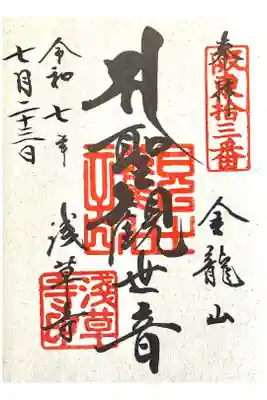 奉拝
坂東拾三番
金龍山
聖観世音
浅草寺
令和七年
七月二十三日
浅草寺印